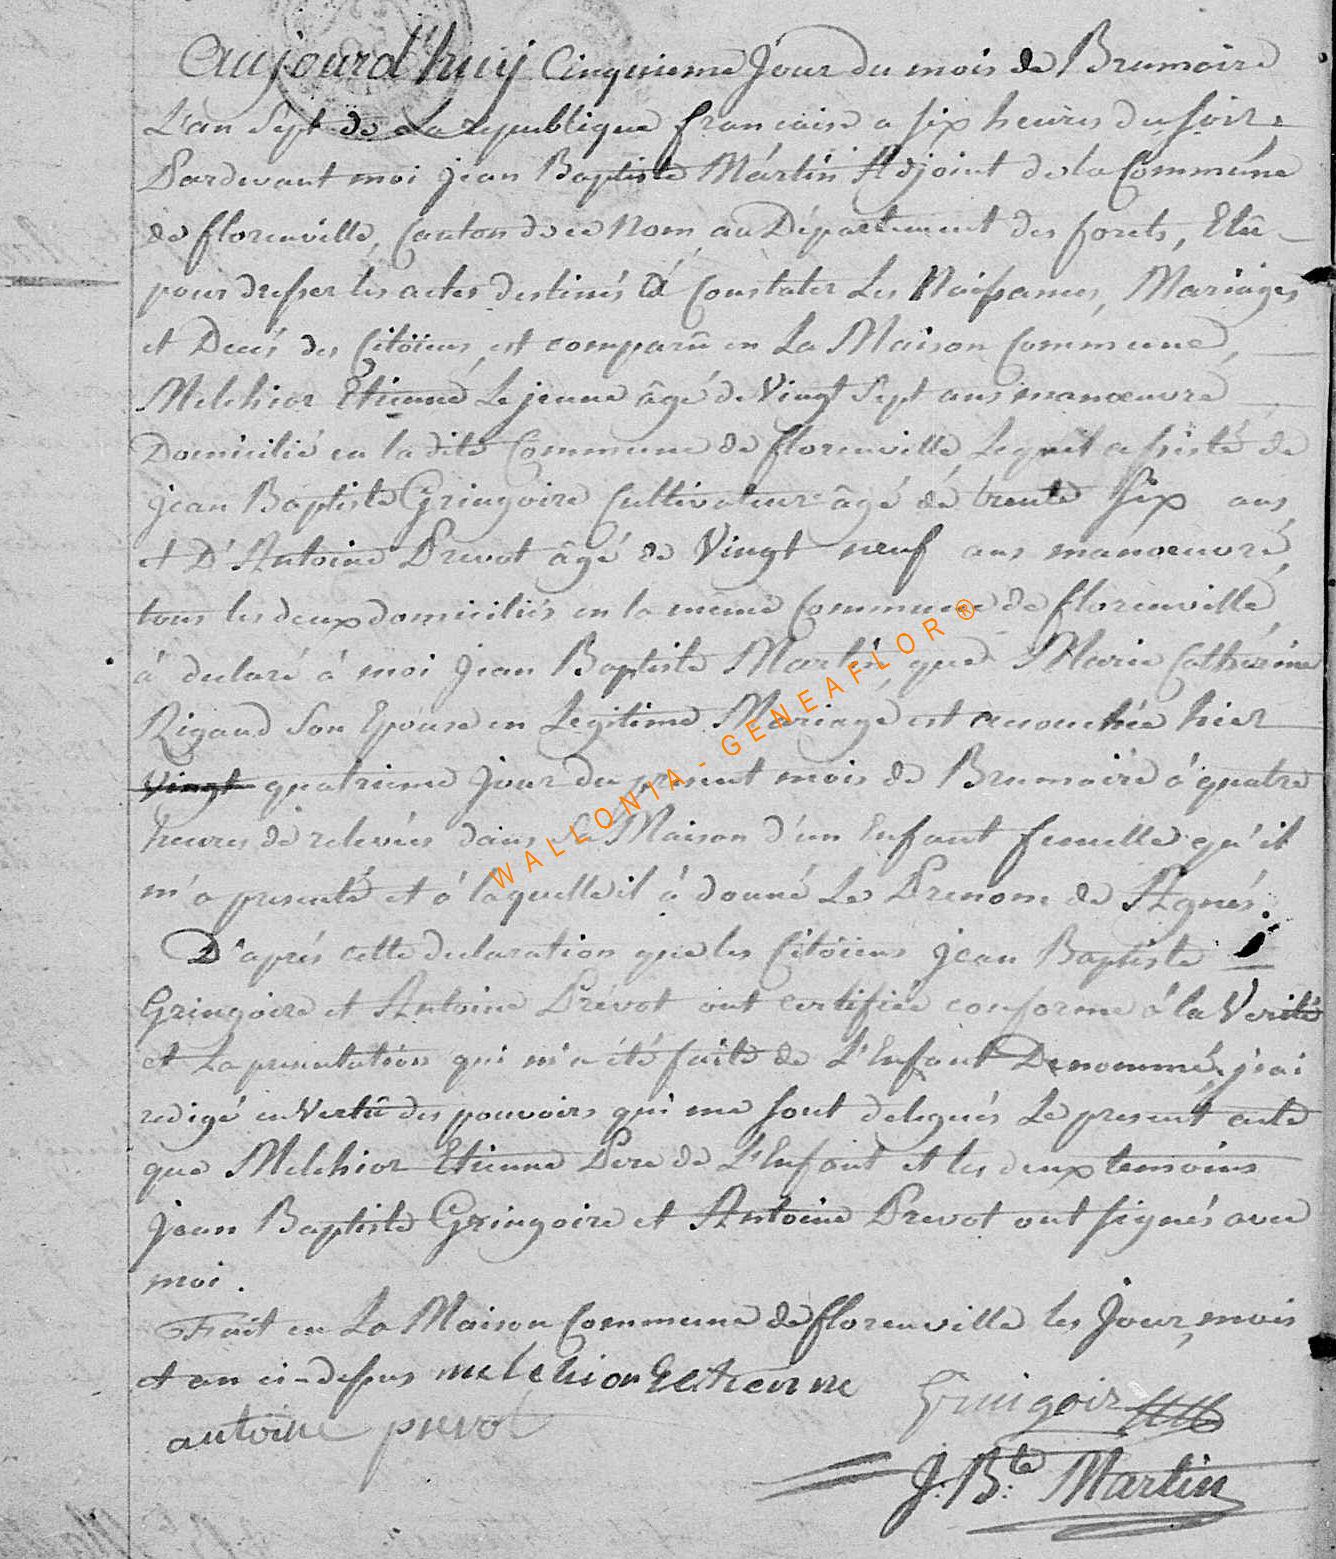 Aujourd'huij Cinquieme Jour du mois de Brumaire
L'an Sept de La republique francaise a six heures du soir,
Pardevant moi jean Baptiste Mártin Adjoint de la Commúne
de florenville, Canton de ce Nom, au Département des forets, Elû
pour dresser les actes destinés à Constater Les Naissances, Mariages
et Decés des Citöiens, est comparû en La Maison Commune,
Melchior Etienne, Le jeune âgé de Vingt Sept ans manœuvre
Domicilié en la dite Commune de florenville, Lequel assisté de
jean Baptiste Gringoire Cultivateur âgé de trente Six ans
et D'Antoine Prevot âgé de Vingt neuf ans manoeuvre,
tous les deux domiciliés en la meme Commune de florenville,
à declaré à moi Jean Baptiste Martin, que Marie Cathérine
Rigaud Son Epouse en Légitime Mariage est accouchée hier
Vingt quatrieme jour du present mois de Brumaire à quatre
heures de relevées dans Sa Maison d'un Enfant femelle qu'il
m'a presenté et à laquelle il à donné Le Prenom de Agnés.
D'aprés cette declaration que les Citöiens Jean Baptiste
Gringoire et Antoine Prévot ont certifiée conforme à la Verité
et La presentation qui m'a été faite de L'Enfant Denommé, j'ai
redigé en Vertû des pouvoirs qui me sont delegués Le present acte
que Melchior Etienne Pere de L'Enfant et les deux temoins
Jean Baptiste Gringoire et Antoine Prevot ont signés avec
moi.
Fait en La Maison Commune de florenville les Jour, mois
et an ci-dessus melchior Estienne
Gringoir
antoine prevot
J. Bte Martin
WALLONIA - GENEAFLOR®